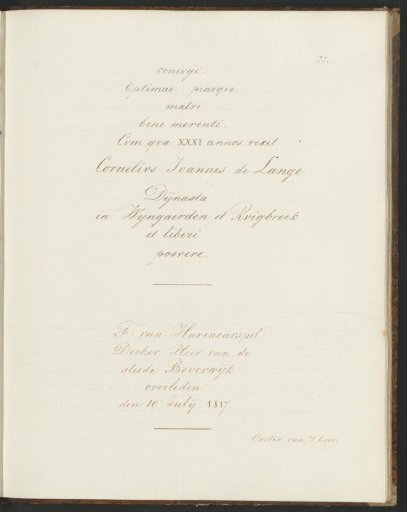 27.
conivgi.
Optimae piaeqve
matri
bene merenti.
Cvm qva XXXI annos vixit
Cornelivs Joannes de Lange
Dÿnasta
in Wÿngaerden et Rvigbroek
et liberi
posvere.
F. van Harencarspel
Decker Heer van de
steede Beverwijk
overleden
den 10 Julij 1817
Oosten van 't koor.